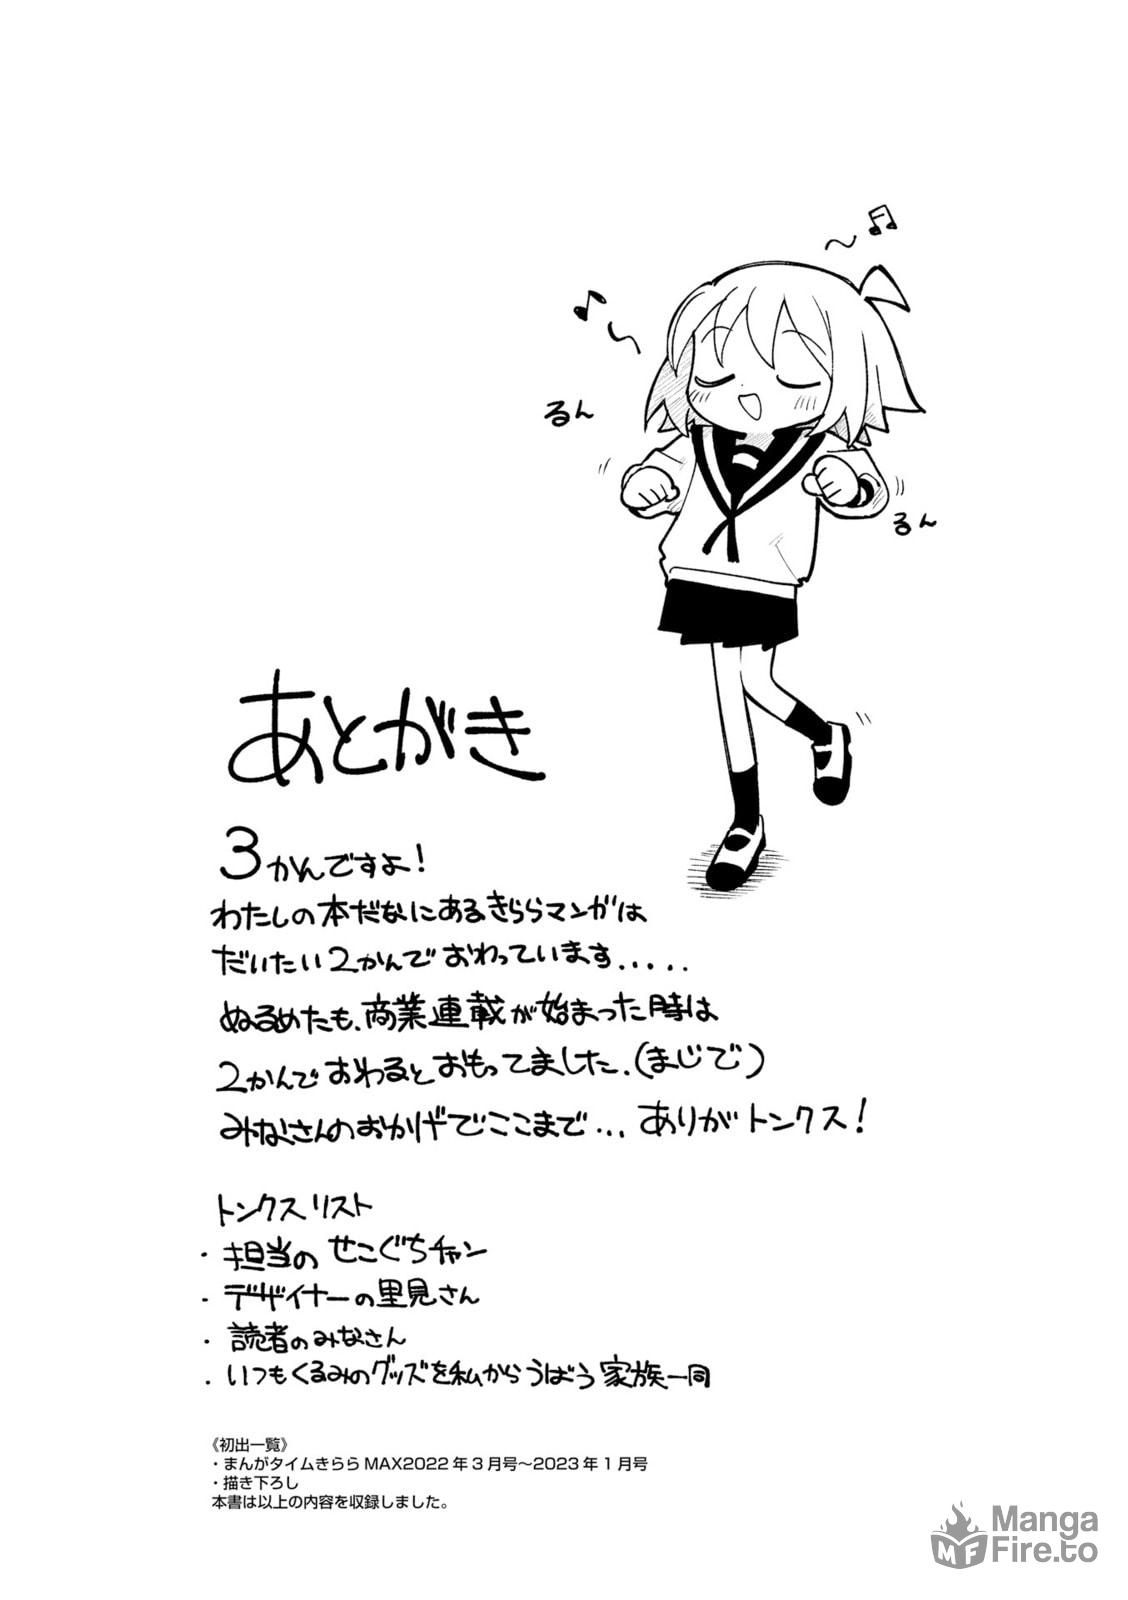 るん
るん
あとがき
3かんですよ!
わたしの本だなにあるきららマンガは
だいたい2かんでおわっています.....
ぬるめたも、商業連載が始まった時は
2かんでおわるとおもってました.(まじで)
みなさんのおかげでここまで...ありがトンクス!
トンクスリスト
・担当のせこぐちチャン
・デザイナーの里見さん
・読者のみなさん
・いつもくるみのグッズを私からうばう家族一同
《初出一覧》
・まんがタイムきららMAX2022年3月号〜2023年1月号
・描き下ろし
本書は以上の内容を収録しました。
MF
Manga
Fire.to